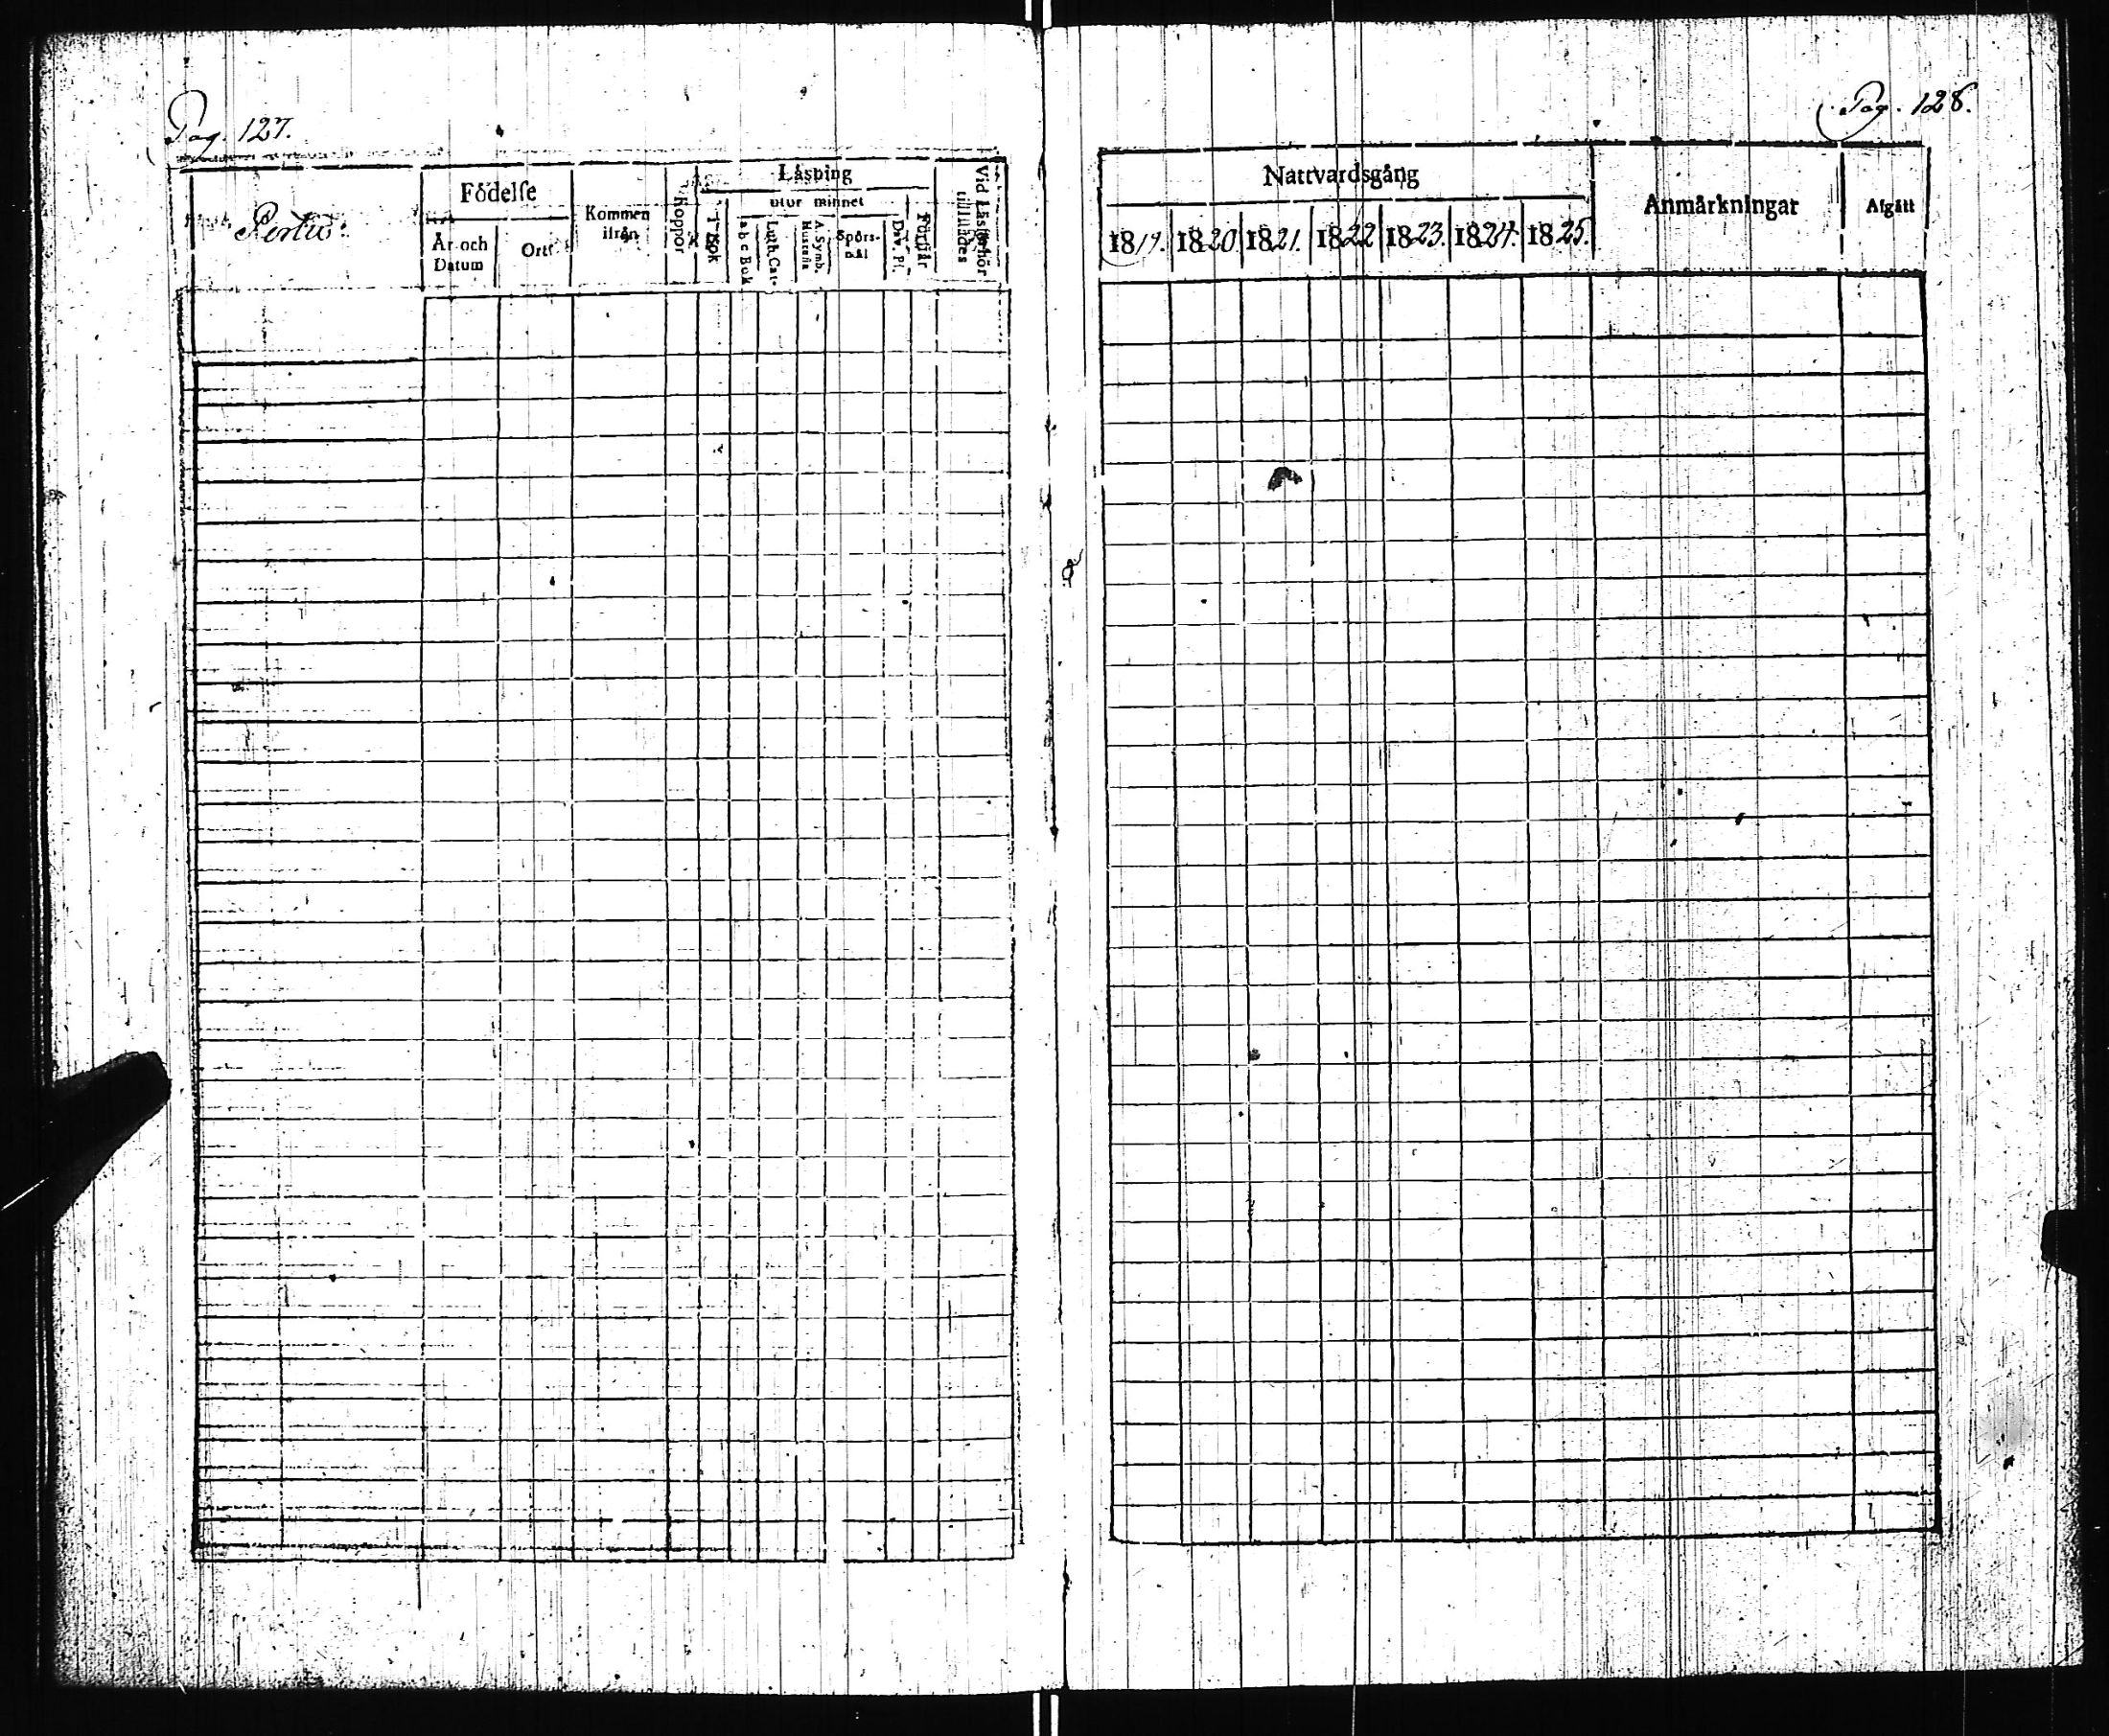 Pag. 127.
Födelse
Kommen ifrån
Koppor
Läsning
utur minnet
Vid Läsförhör tillstädes
År och Datum
Ort
I Bok
a b c Bok
Luth. Cat.
A. Symb. Hustafla
Spörsmål
Dav. Ps.
Förstår
Pag. 128.
Nattvardsgång
Anmärkningar
Afgått
1819. 1820. 1821. 1822 1823. 1824. 1825.